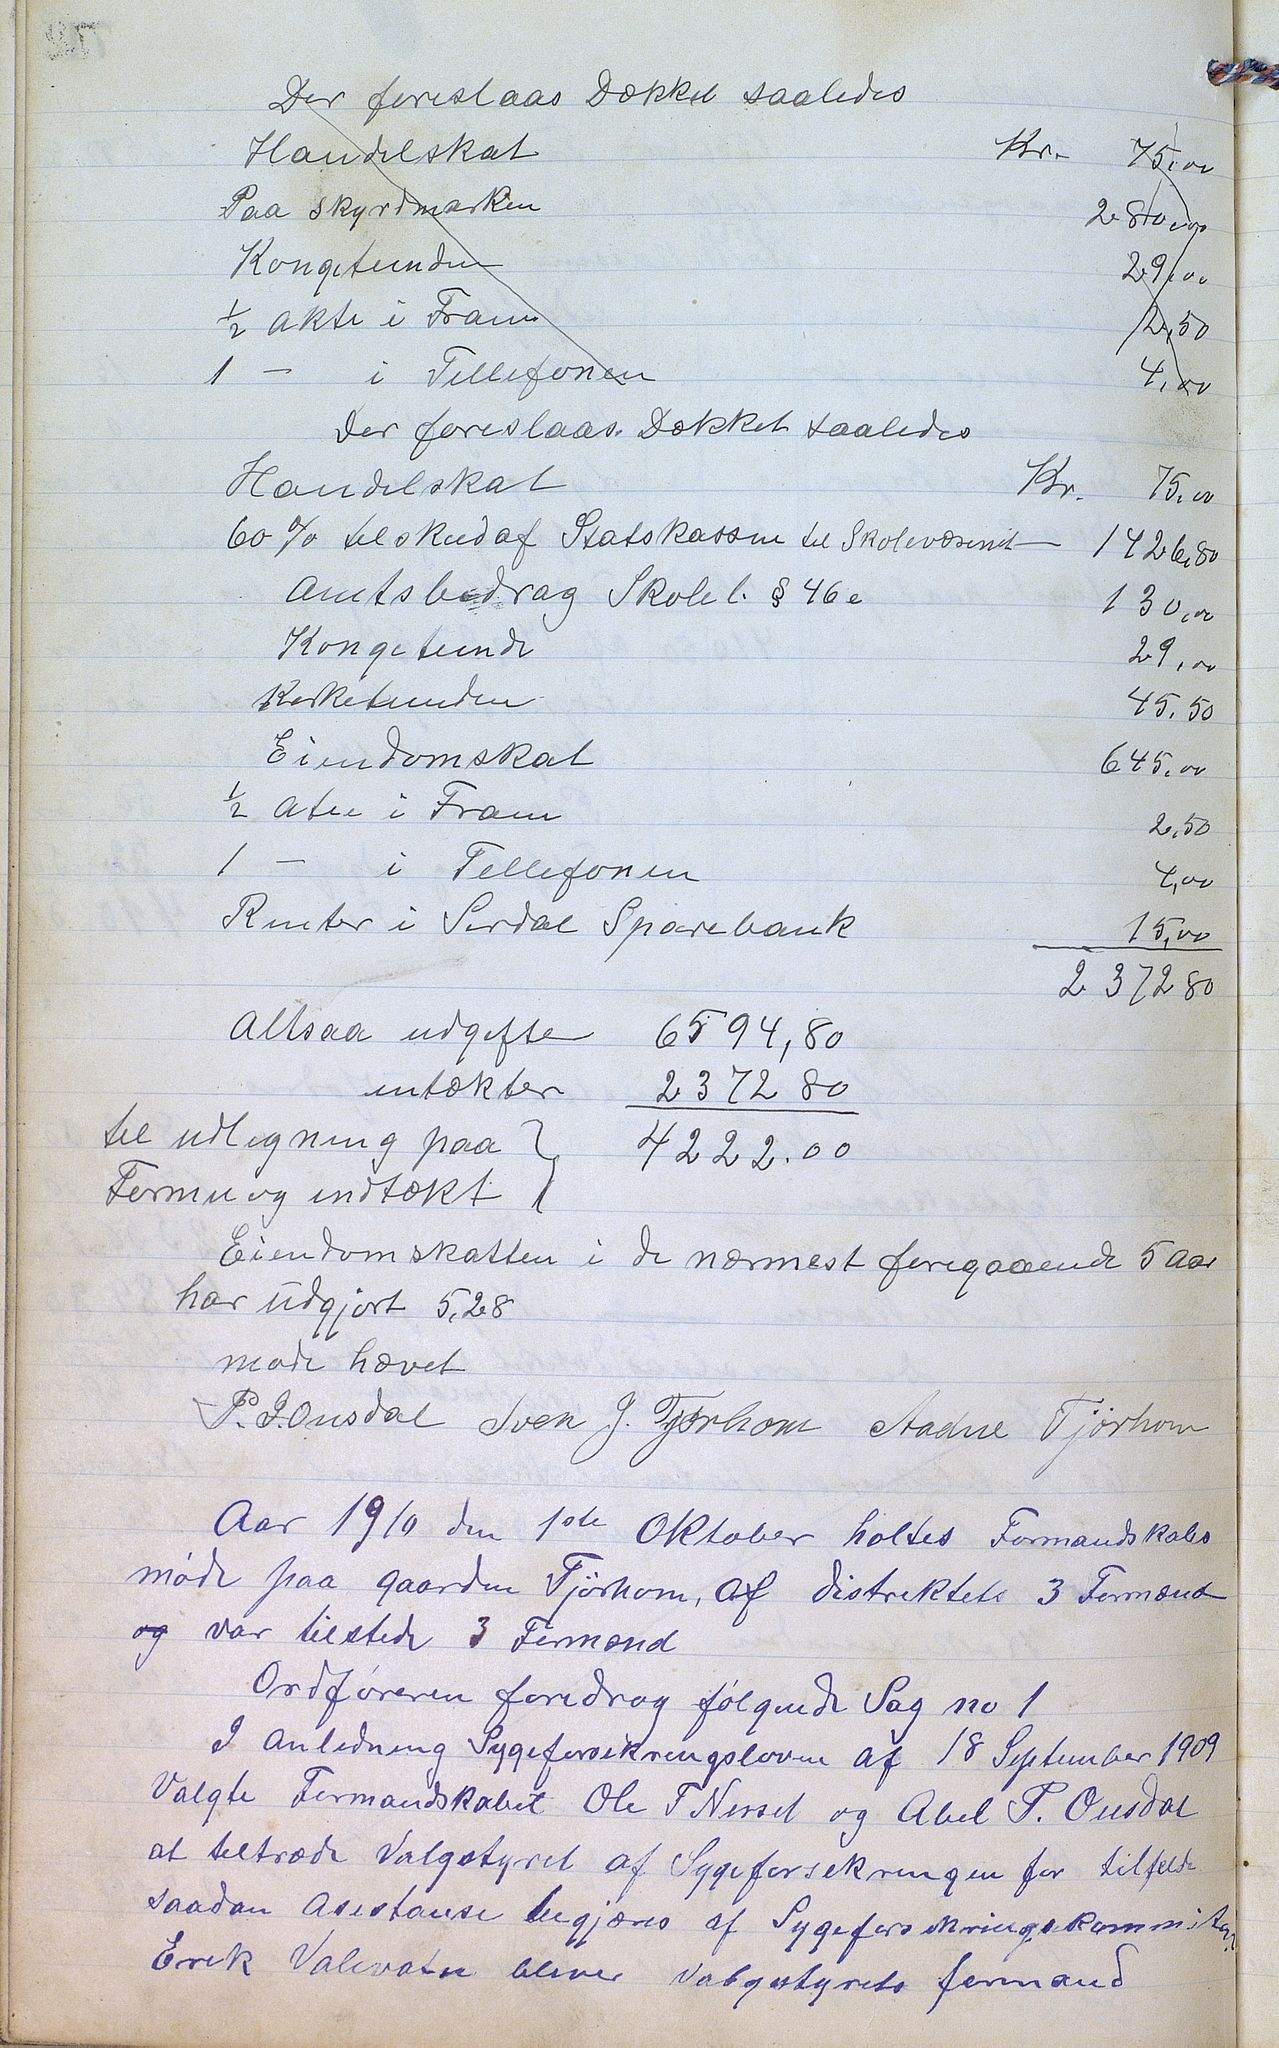 Der foreslaas Dækket saaledes
Handelskat Kr. 75,00
Paa skyrdmarken 280,00
Kongetienden 29,00
½ akti i Fram 2,50
1 — i Tellefonen 4,00
Der foreslaas Dækket saaledes
Handelskat Kr. 75,00
60 % telskud af Statskassen til Skolevæsenet 1426,80
Amtsbedrag Skolel. § 46 e 130,00
Kongetiende 29,00
Kirketienden 45,50
Eiendomskat 645,00
½ atie i Fram 2,50
1 — i Tellefonen 4,00
Renter i Sirdal Sparebank 15,00
2372 80
Altsaa udgifter 6594,80
intækter 2372 80
til udligning paa 4222.00
Formu og indtækt
Eiendomskatten i de nærmest foregaaende 5 aar
har udgjort 5,28
møde hævet
P. J. Ousdal Sven J. Tjørhom Aadne Tjørhom
Aar 1910 den 1ste Oktober holtes Formandskabs
møde paa gaarden Tjörhom, af distriktets 3 Formænd
og var tilstede 3 Formænd
Ordføreren foredrog følgende Sag no 1
I anledning Sygeforsikringsloven af 18 September 1909
Valgte Formandskabet Ole T Nesset og Abel P. Ousdal
at teltræde Valgstyret af Sygeforsekringen for tilfelde
saadan Asestanse begjæres af
Erik Valevatn bliver valgstyrets formand